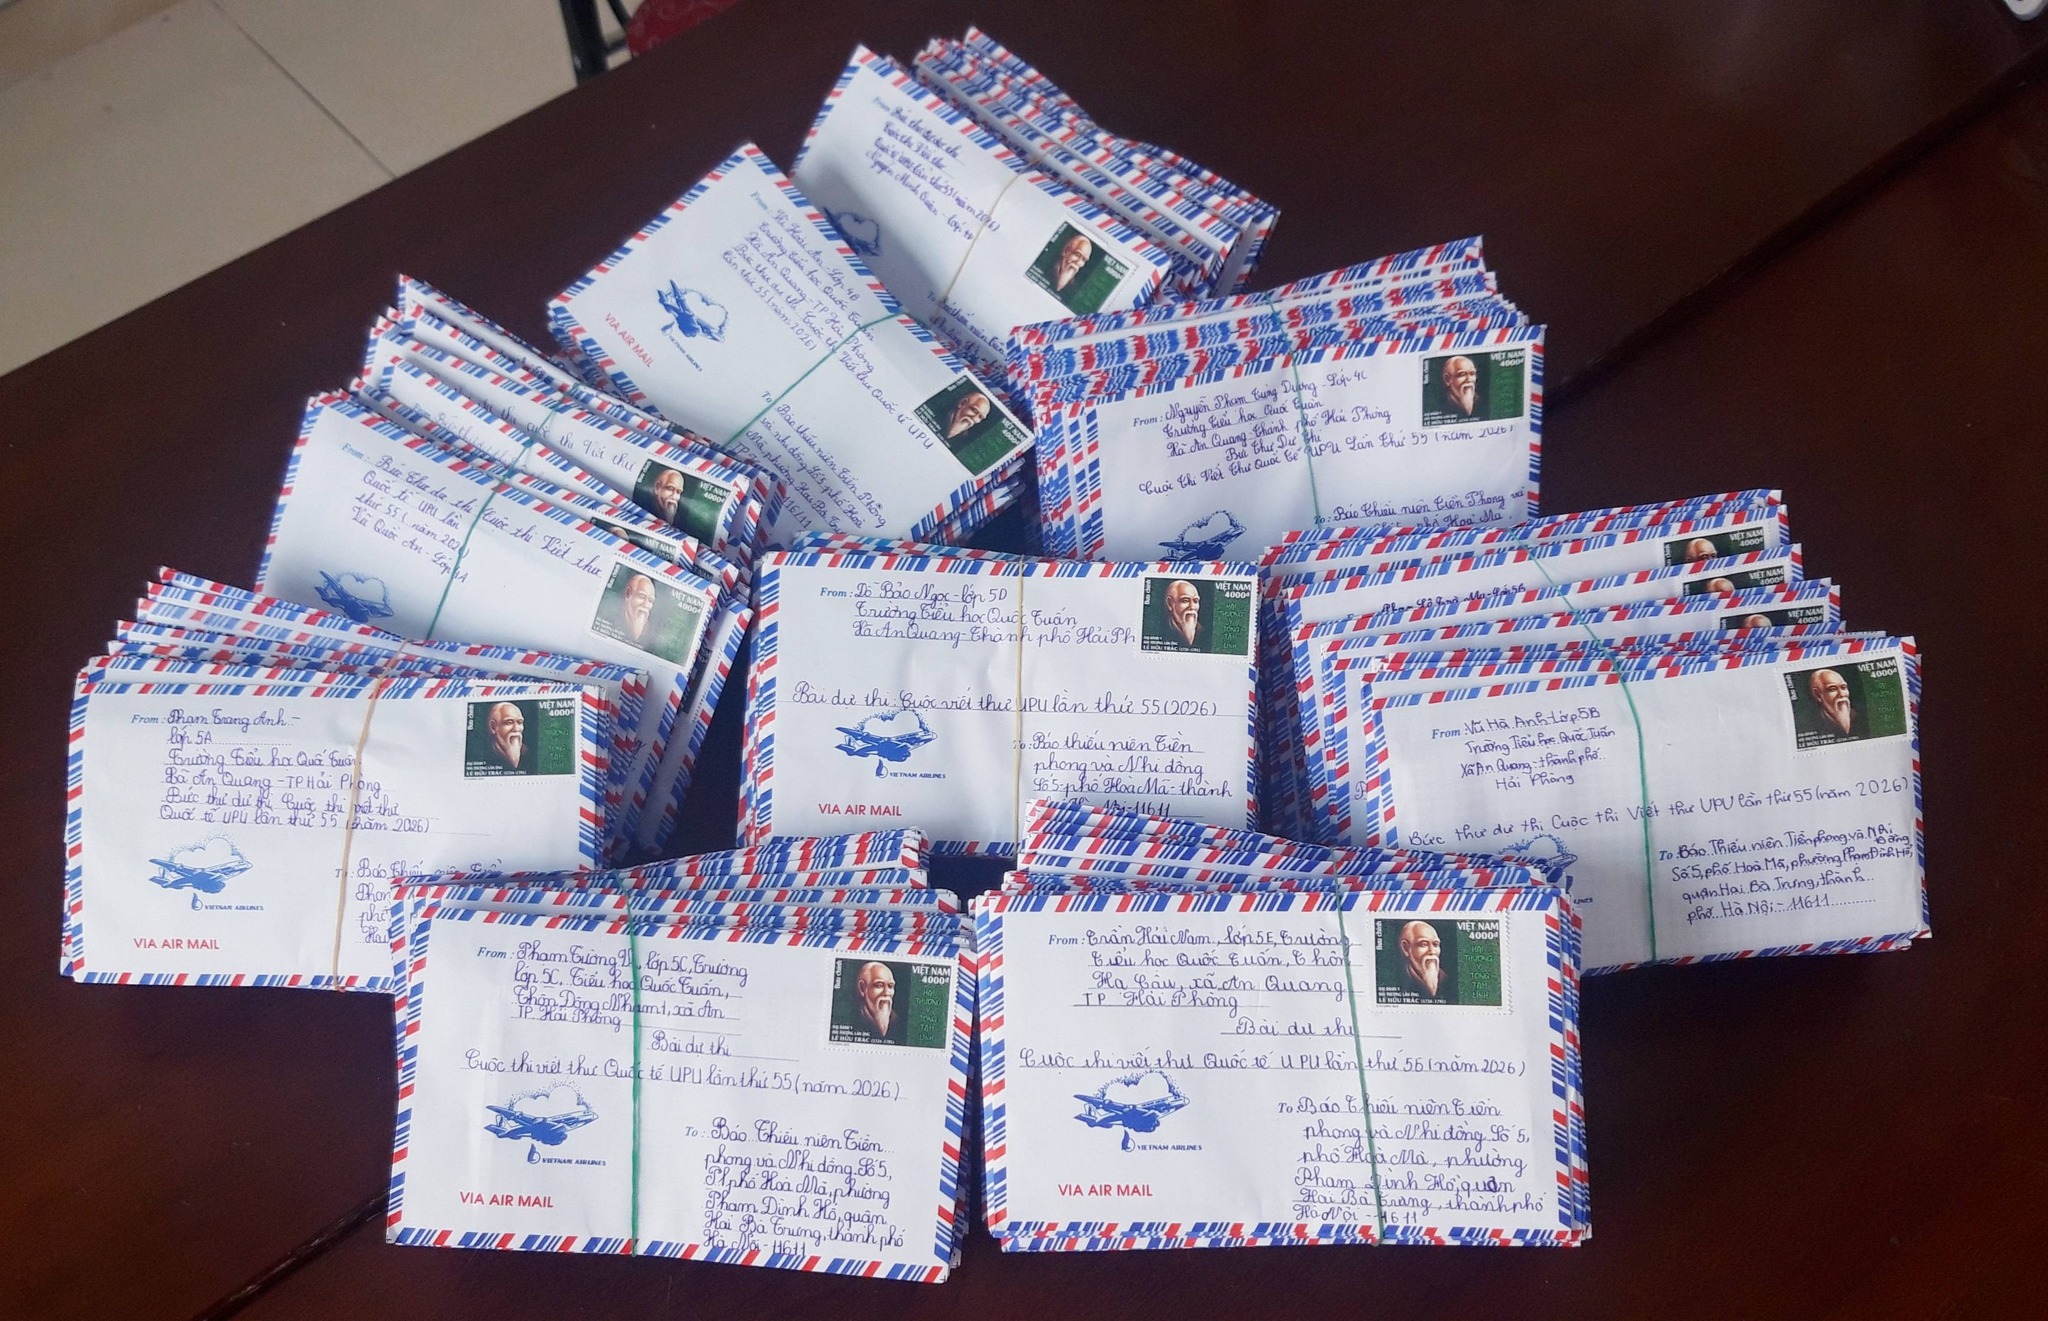 From:
Bức thư dự thi
Cuộc thi Viết thư
Quốc tế UPU lần thứ 55 (năm 2026)
Nguyễn Minh Quân - Lớp 4D
From: Vũ Hoài An Lớp 4B
Trường Tiểu học Quốc Tuấn
Xã An Quang - TP Hải Phòng
Bức thư dự thi Cuộc thi Viết thư Quốc tế UPU
lần thứ 55 (năm 2026)
To: Báo thiếu niên Tiền Phong
và nhi đồng Số 5, phố Hoà
VIETNAM AIRLINES
VIA AIR MAIL
From: Nguyễn Phạm Tùng Dương - Lớp 4C
Trường Tiểu học Quốc Tuấn
Xã An Quang - Thành phố Hải Phòng
Bức Thư Dự Thi
Cuộc Thi Viết Thư Quốc Tế UPU Lần Thứ 55 (năm 2026)
To: Báo Thiếu niên Tiền Phong và
VIỆT NAM
4000đ
cuộc thi Viết thư
VIỆT NAM
4000đ
From: Bức Thư dự thi Cuộc thi Viết thư
Quốc tế UPU lần
thứ 55 (năm 2026)
Vũ Quốc An - Lớp 4A
VIỆT NAM
4000đ
From: Phạm Trang Anh -
lớp 5A
Trường Tiểu học Quốc Tuấn
Xã An Quang - TP Hải Phòng
Bức thư dự thi Cuộc thi viết thư
Quốc tế UPU lần thứ 55 (năm 2026)
Bưu chính
VIỆT NAM
4000đ
LÊ HỮU TRÁC
VIETNAM AIRLINES
VIA AIR MAIL
From: Đỗ Bảo Ngọc - lớp 5D
Trường Tiểu học Quốc Tuấn
Xã An Quang - Thành phố Hải Ph
Bài dự thi: Cuộc viết thư UPU lần thứ 55 (2026)
Báo thiếu niên Tiền
phong và Nhi đồng
Số 5 - phố Hoà Mã - thành
11611
Bưu chính
VIỆT NAM
4000đ
HẢI
THƯỢNG
Y
TÔNG
TÂM
LĨNH
LÊ HỮU TRÁC (1724-1791)
VIETNAM AIRLINES
VIA AIR MAIL
From: Vũ Hà Anh - Lớp 5B
Trường Tiểu học Quốc Tuấn
Xã An Quang - thành phố
Hải Phòng
Bức thư dự thi Cuộc thi Viết thư UPU lần thứ 55 (năm 2026)
To: Báo Thiếu niên Tiền phong và Nhi Đồng
Số 5, phố Hoà Mã, phường Phạm Đình Hổ,
quận Hai Bà Trưng, thành
phố Hà Nội - 11611
Bưu chính
VIỆT NAM
4000đ
LÊ HỮU TRÁC (1724-1791)
From: Phạm Tường Vi, lớp 5C, Trường
lớp 5C, Tiểu học Quốc Tuấn,
Thôn Đông Nham 1, xã An
TP. Hải Phòng
Bài dự thi
Cuộc thi viết thư Quốc tế UPU lần thứ 55 (năm 2026)
To: Báo Thiếu niên Tiền
phong và Nhi đồng Số 5,
phố Hoà Mã, phường
Phạm Đình Hổ, quận
Hai Bà Trưng, thành phố
Hà Nội - 11611
Bưu chính
VIỆT NAM
4000đ
LÊ HỮU TRÁC (1724-1791)
VIETNAM AIRLINES
VIA AIR MAIL
From: Trần Hải Nam, lớp 5E, Trường
Tiểu học Quốc Tuấn, Thôn
Hạ Câu, xã An Quang
TP Hải Phòng
Bài dự thi
Cuộc thi viết thư Quốc tế UPU lần thứ 55 (năm 2026)
To: Báo Thiếu niên Tiền
phong và Nhi đồng Số 5,
phố Hoà Mã, phường
Phạm Đình Hổ, quận
Hai Bà Trưng, thành phố
Hà Nội - 11611
Bưu chính
VIỆT NAM
4000đ
HẢI
THƯỢNG
Y
TÔNG
TÂM
LĨNH
LÊ HỮU TRÁC (1724-1791)
VIETNAM AIRLINES
VIA AIR MAIL